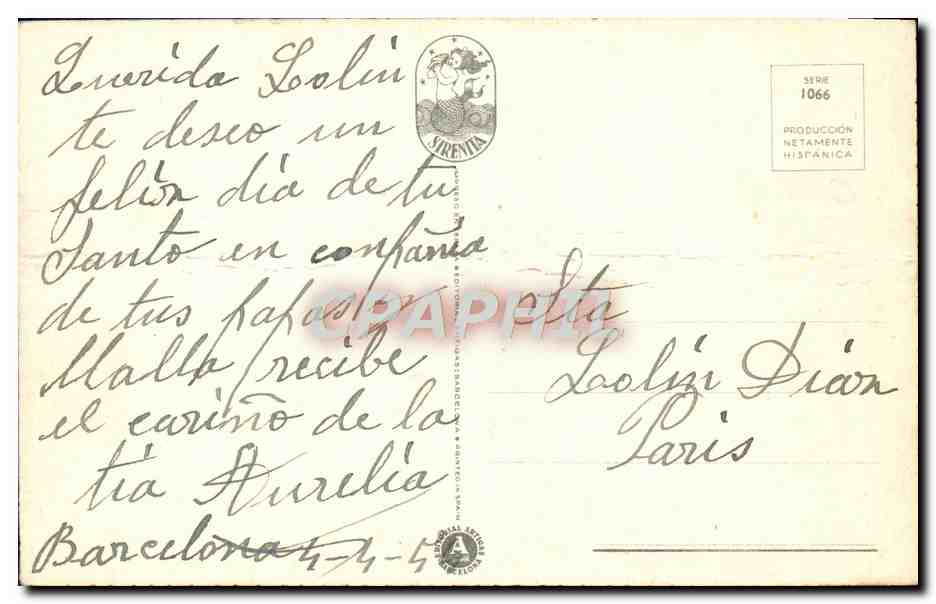 Querida Lolin
te deseo un
felión dia de tu
Santo en conpañia
de tus papas y
Malla recibe
el cariño de la
tia Aurelia
Barcelona 4-4-5
SIRENITA
EDITORIAL ARTIGAS BARCELONA PRINTED IN SPAIN
EDITORIAL ARTIGAS
A
BARCELONA
SERIE
1066
PRODUCCIÓN
NETAMENTE
HISPÁNICA
CPAPHIL
Sta
Lolin Dion
Paris